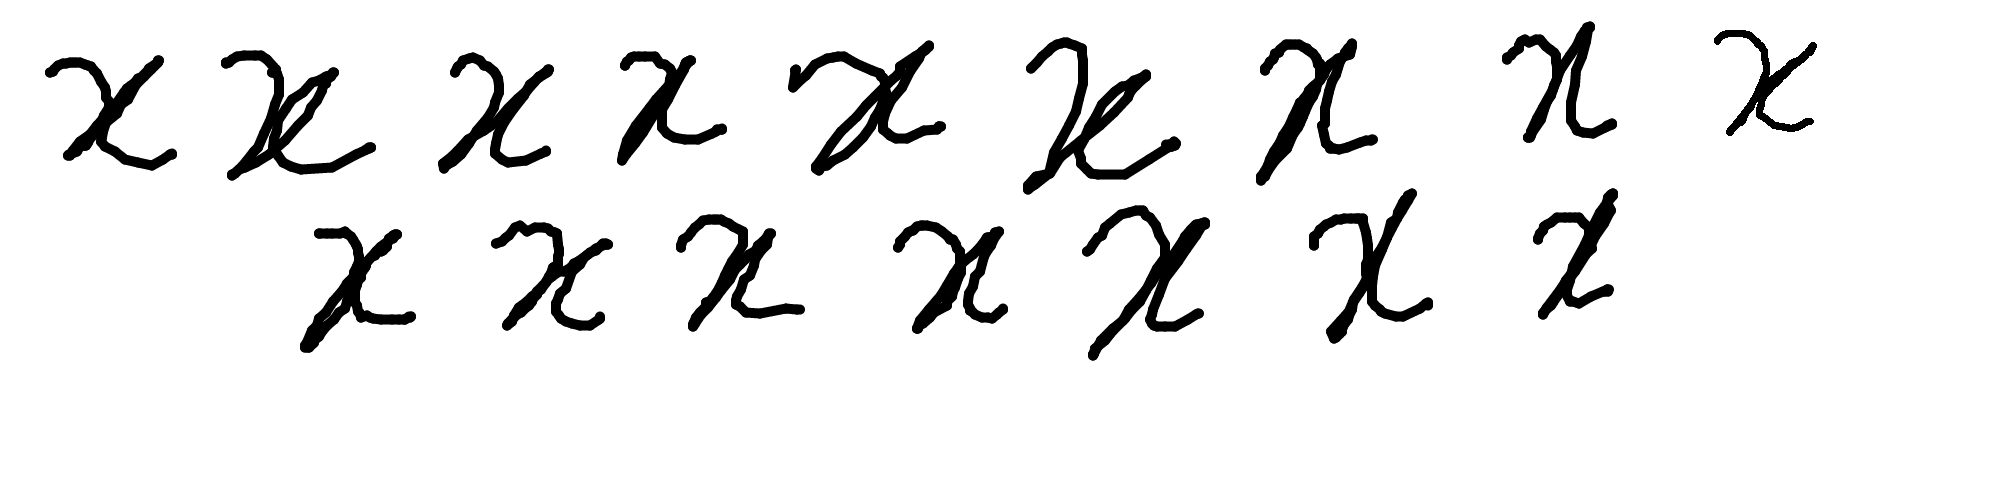 x x x x x x x x x
x x x x x x x